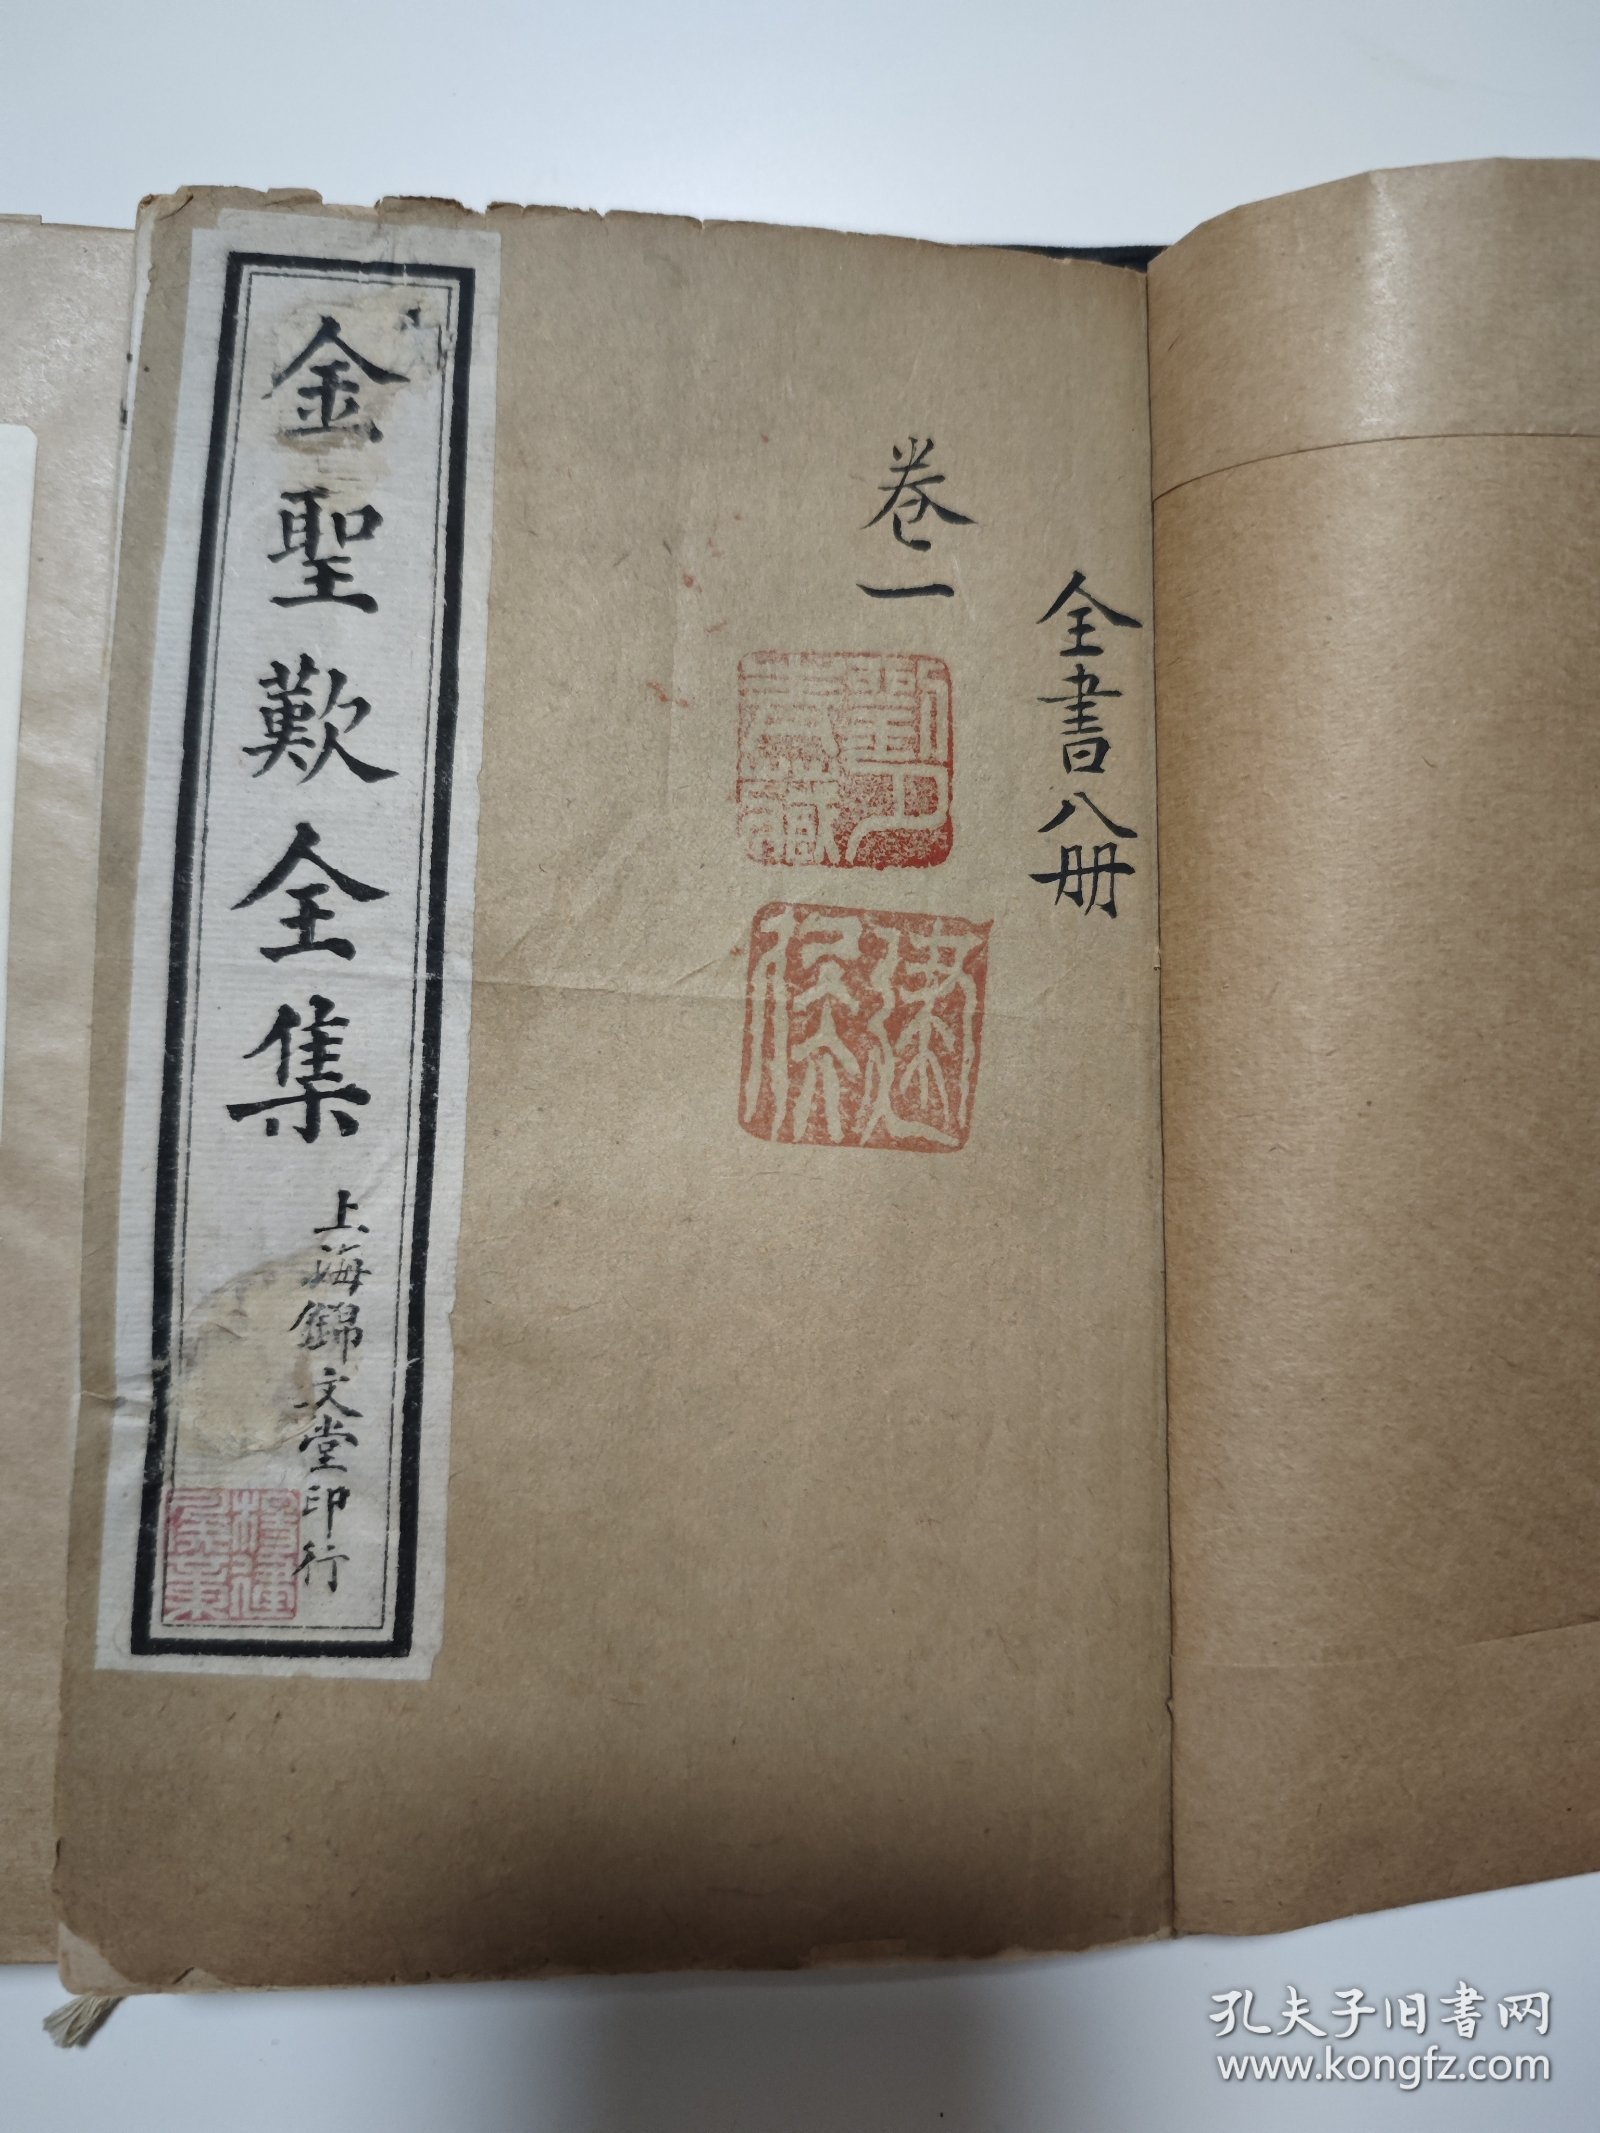 全書八册
卷一
金聖歎全集
上海錦文堂印行
孔夫子旧书网
www.kongfz.com